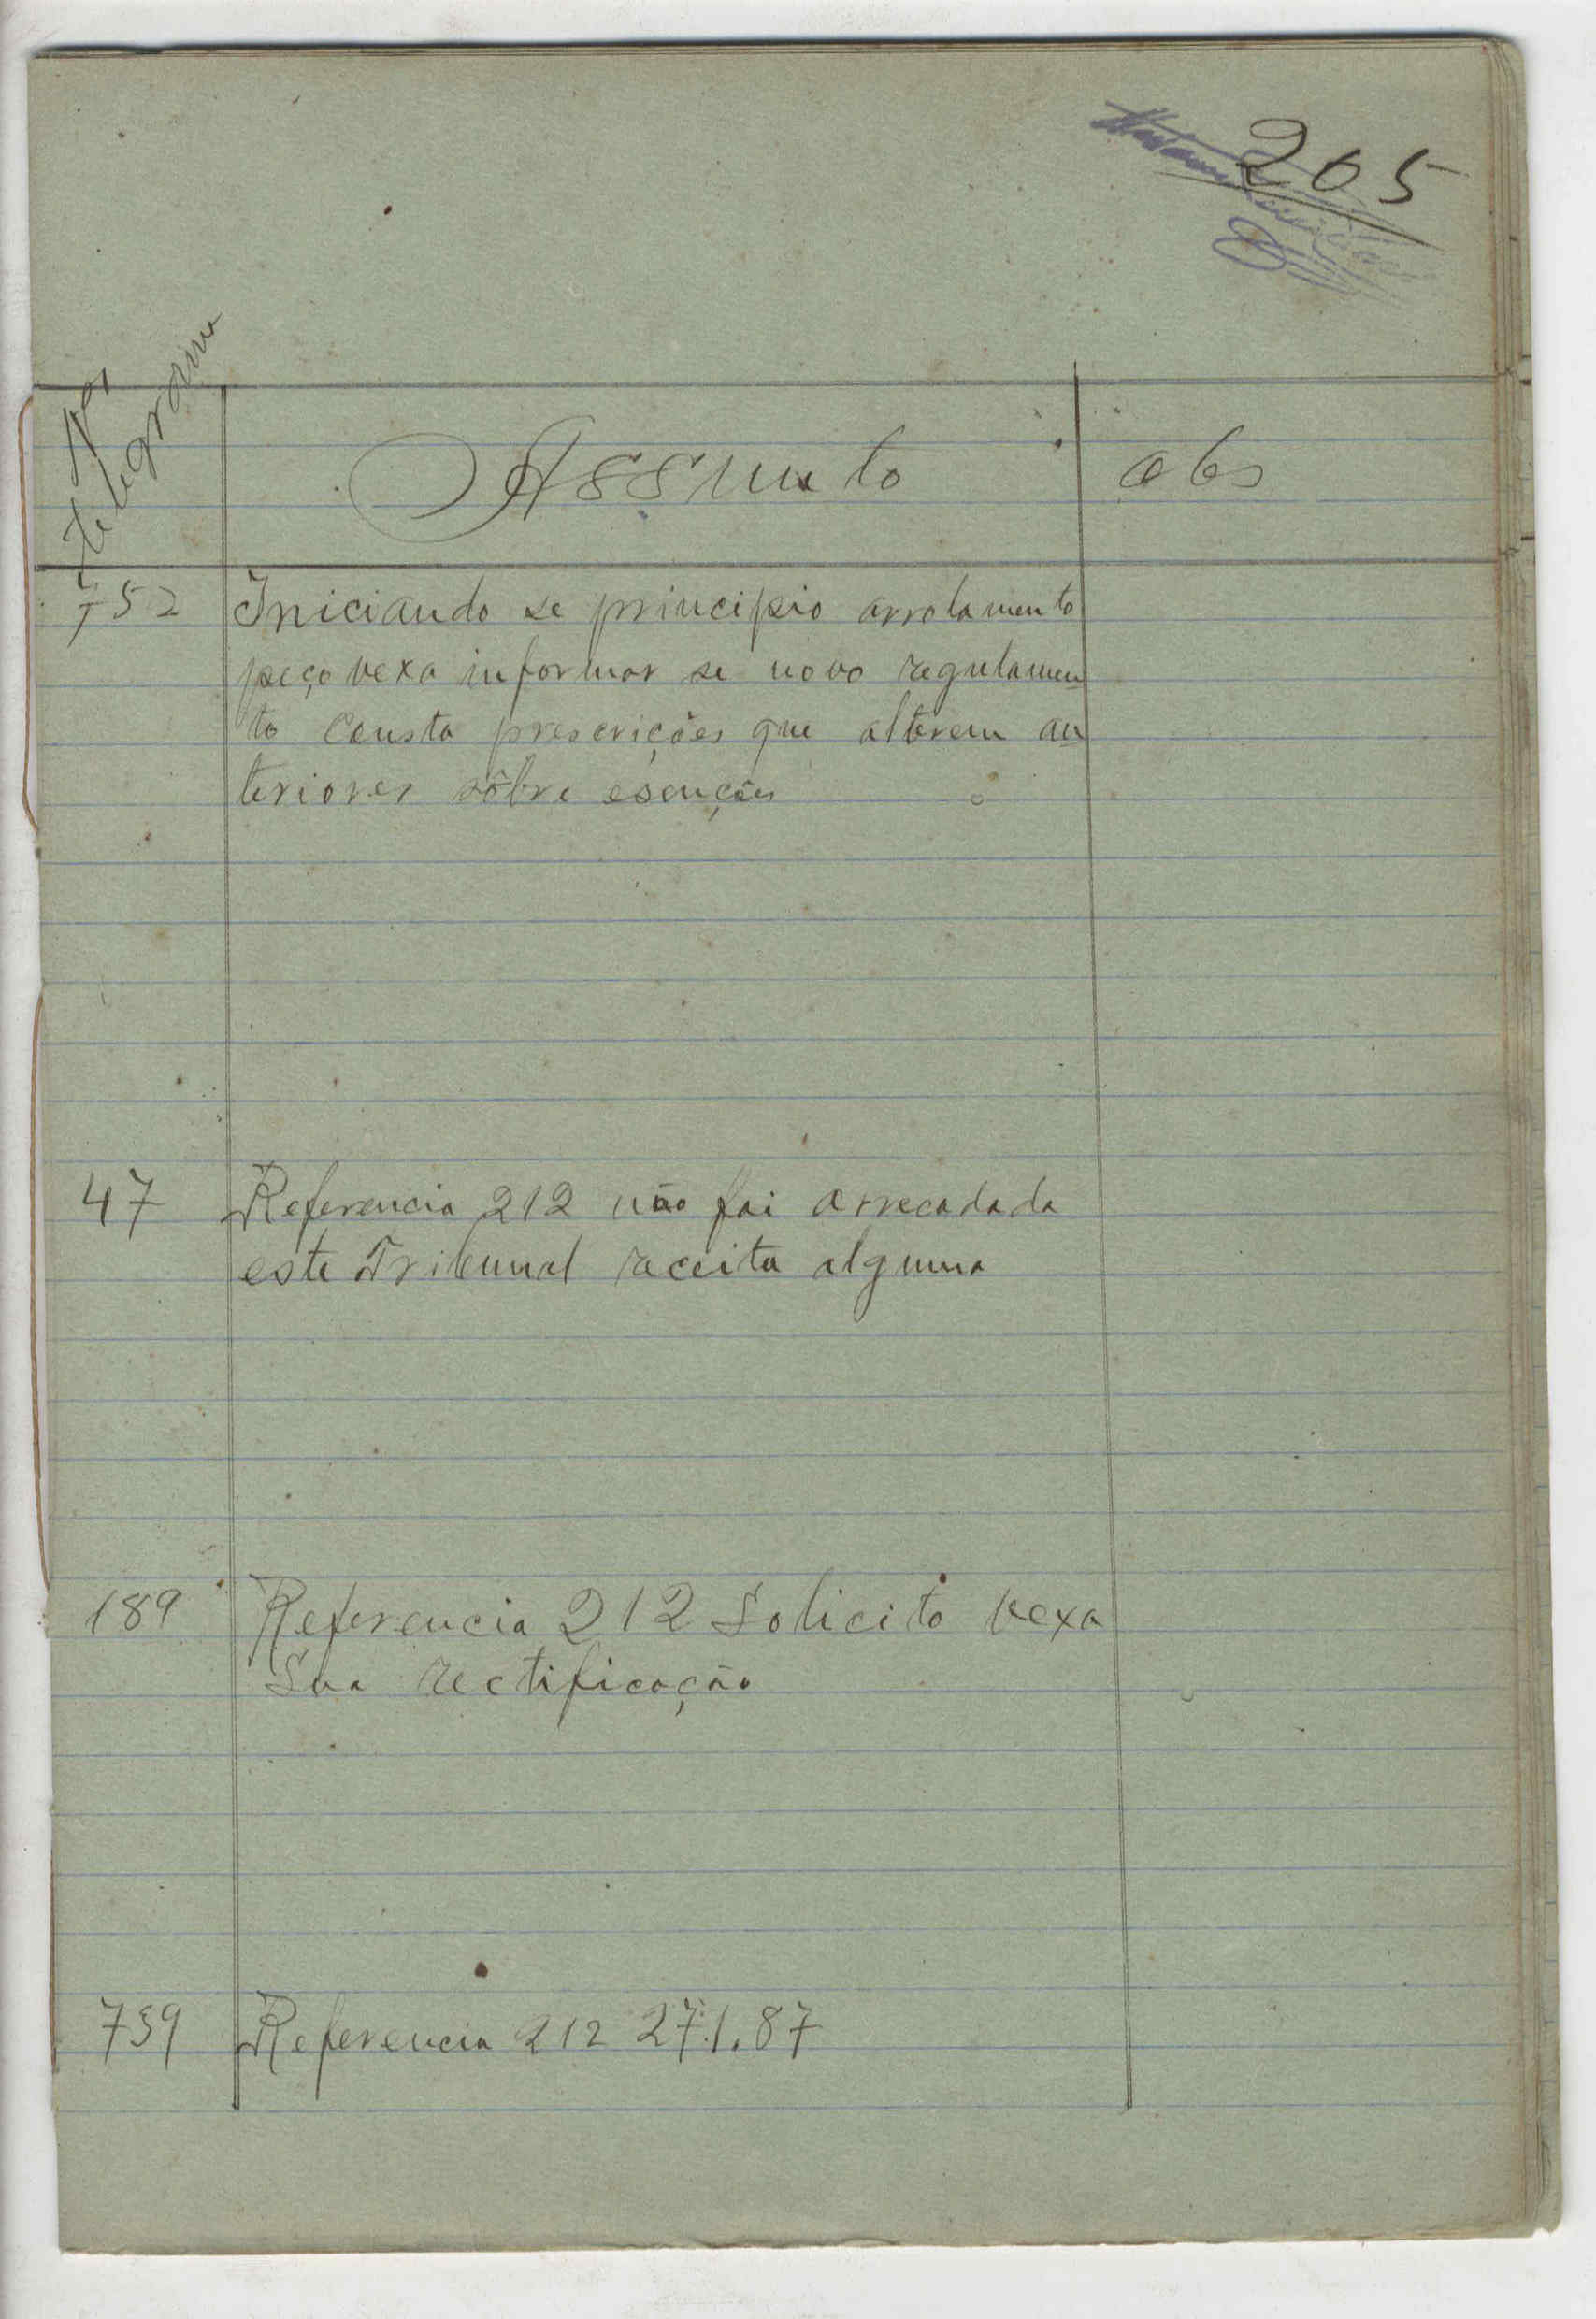 205
telegrama
Assunto
obs
752
Iniciando se principio arrolamento
peço vexa informar se novo regulamen
to consta prescrições que alterem an
teriores sôbre esenções
47
Referencia 212 não foi arrecadada
este Tribunal receita alguma
189
Referencia 212 Solicito vexa
Sua rectificação
759
Referencia 212 271.87